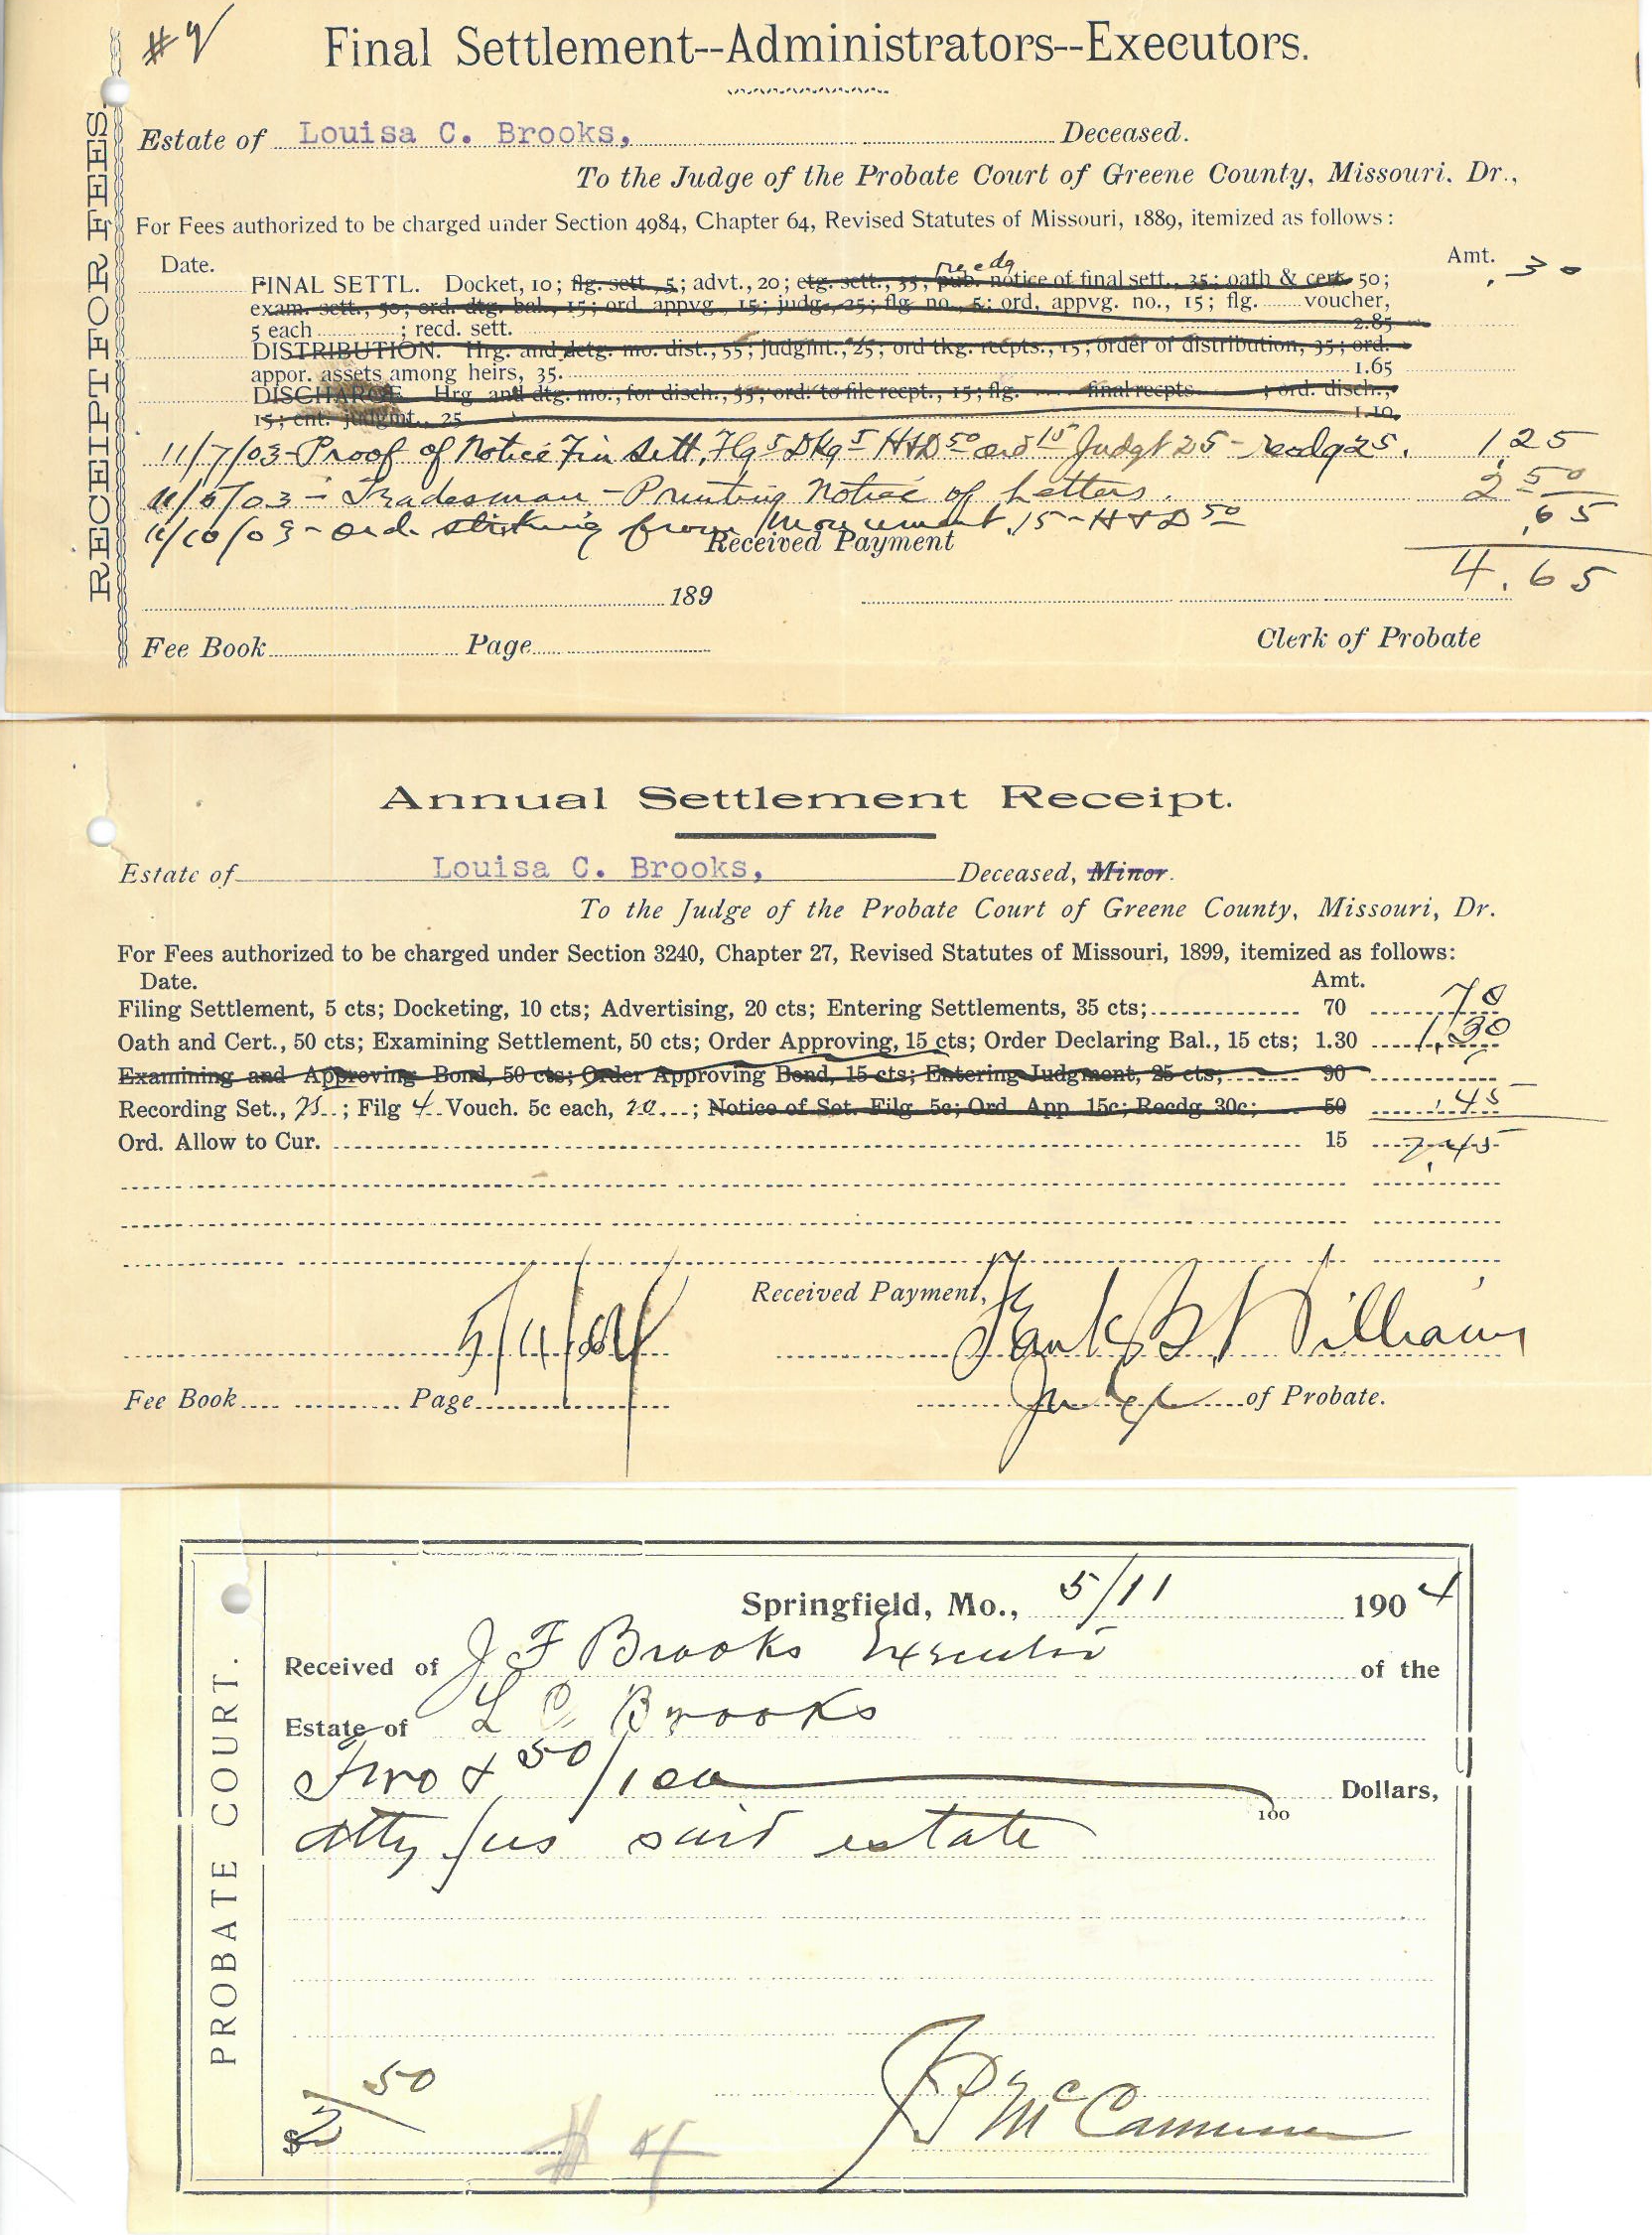 #9
RECEIPT FOR FEES.
Final Settlement--Administrators--Executors.
Estate of Louisa C. Brooks, Deceased.
To the Judge of the Probate Court of Greene County, Missouri. Dr.,
For Fees authorized to be charged under Section 4984, Chapter 64, Revised Statutes of Missouri, 1889, itemized as follows:
Date. Amt.
recdg
FINAL SETTL. Docket, 10; flg. sett., 5; advt., 20; etg. sett., 35; pub. notice of final sett., 35; oath & cert. 50; .30
exam. sett., 50; ord. dtg. bal., 15; ord. appvg., 15; judg., 25; flg. no., 5; ord. appvg. no., 15; flg. ...... voucher,
5 each ............; recd. sett. 2.85
DISTRIBUTION. Hrg. and detg. mo. dist., 55; judgmt., 25; ord tkg. recpts., 15; order of distribution, 35; ord.
appor. assets among heirs, 35. 1.65
DISCHARGE. Hrg. and dtg. mo., for disch., 55; ord. to file recpt., 15; flg. final recpts ; ord. disch.,
15; ent. judgmt., 25 1.10.
11/7/03 - Proof of Notice Fin Sett. Flg 5 Dkg 5 H&D 50 ord 15 Judgt 25 - recdg 25. 1.25
11/5/03 - Tradesman - Printing Notice of Letters. 2 50
11/10/03 - ord. striking from Monument. 15 - H & D 50 .65
Received Payment
4.65
189
Fee Book Page Clerk of Probate
Annual Settlement Receipt.
Estate of Louisa C. Brooks, Deceased, Minor.
To the Judge of the Probate Court of Greene County, Missouri, Dr.
For Fees authorized to be charged under Section 3240, Chapter 27, Revised Statutes of Missouri, 1899, itemized as follows:
Date. Amt.
Filing Settlement, 5 cts; Docketing, 10 cts; Advertising, 20 cts; Entering Settlements, 35 cts; 70 70
Oath and Cert., 50 cts; Examining Settlement, 50 cts; Order Approving, 15 cts; Order Declaring Bal., 15 cts; 1.30 1.30
Examining and Approving Bond, 50 cts; Order Approving Bond, 15 cts; Entering Judgment, 25 cts; 90
Recording Set., 25 ; Filg 4 Vouch. 5c each, 20 ; Notice of Set. Filg. 5c; Ord. App. 15c; Recdg 30c; 50 .45
Ord. Allow to Cur. 15 2.45
Received Payment,
5/11/04 Frank B. Williams
Fee Book Page Judge of Probate.
PROBATE COURT.
Springfield, Mo., 5/11 1904
Received of J F Brooks Executor of the
Estate of L C Brooks
Two & 50/100 100 Dollars,
Atty fees said estate
$2 50
J P McCammon
# 4